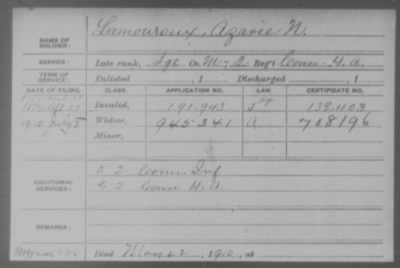 NAME OF SOLDIER: Lamoureux, Azarie N.
SERVICE: Late rank, Sgt Co. M - 2 Reg't Conn H. A.
TERM OF SERVICE: Enlisted , 1 Discharged , 1
DATE OF FILING. CLASS. APPLICATION NO. LAW CERTIFICATE NO.
Invalid, 191.943 138.403
1910 July 5 Widow, 945.341. 708196
Minor,
ADDITIONAL SERVICES: 52 Conn Inf
42 Conn H.A.
REMARKS:
Died 1910, at